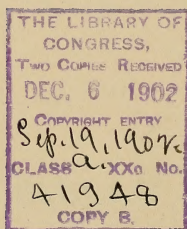 THE LIBRARY OF
CONGRESS,
TWO COPIES RECEIVED
DEC. 6 1902
COPYRIGHT ENTRY
Sep. 19, 1902
CLASS a XXc No.
41948
COPY B.